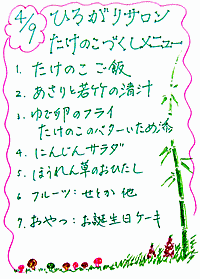 4/9 ひろがりサロン
たけのこづくしメニュー
1. たけのこご飯
2. あさりと若竹の清汁
3. ゆで卵のフライ
たけのこのバターいため添
4. にんじんサラダ
5. ほうれん草のおひたし
6 フルーツ:せとか他
7. おやつ:お誕生日ケーキ